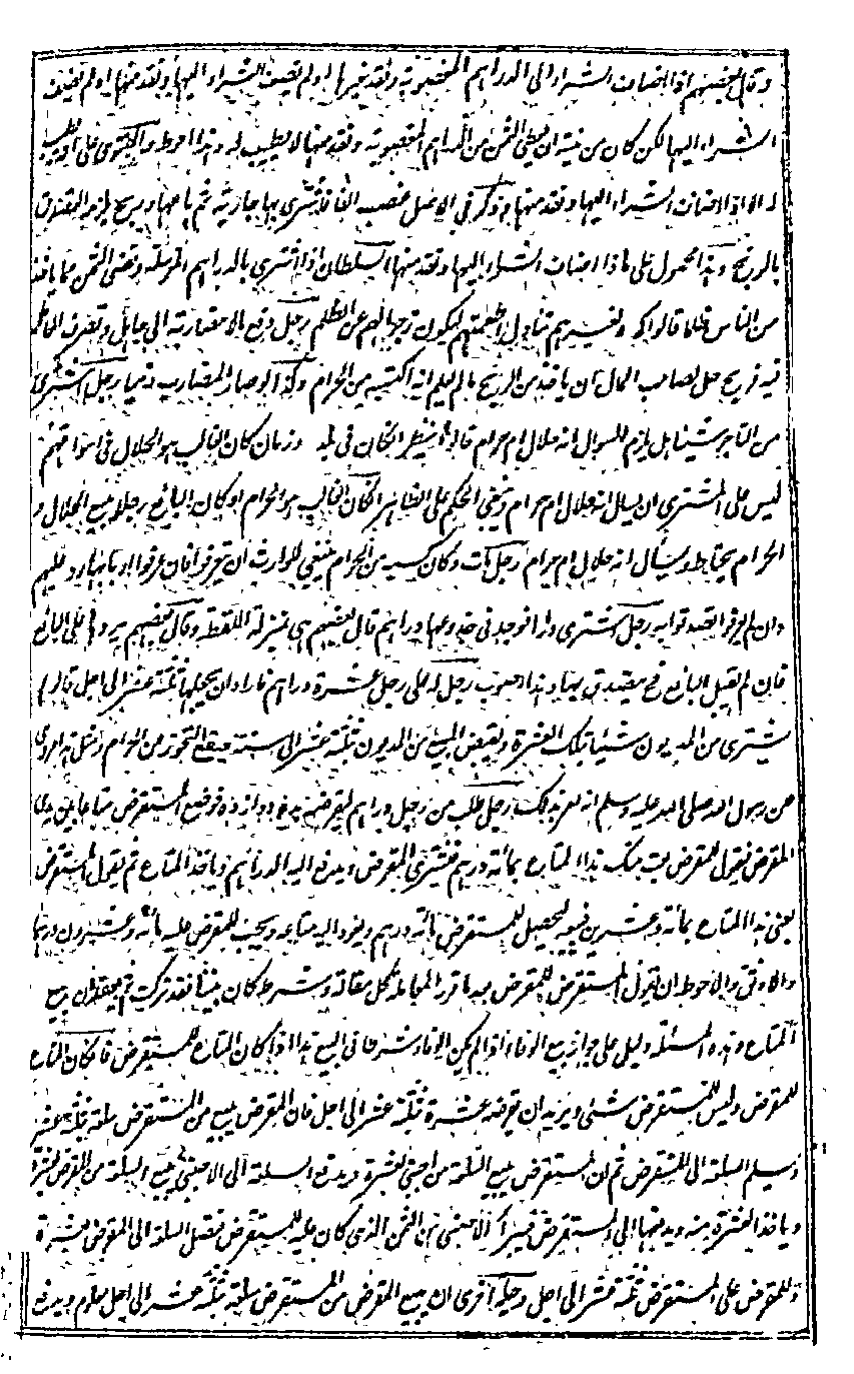 وقال بعضهم اذا اضاف الشراء الى الدراهم المغصوبة ونقد غيرها او لم يضف الشراء اليها ونقد منها او لم يضف
الشراء اليها لكن كان من نيته ان يعطي الثمن من الدراهم المغصوبة ونقد منها لا يطيب له وهذا احوط والفتوى على انه يطيب
له الا اذا اضاف الشراء اليها ونقد منها وذكر في الاصل غصب الفا فاشترى بها جارية ثم باعها وربح يلزمه التصدق
بالربح وهذا محمول على ما اذا اضاف الشراء اليها ونقد منها السلطان اذا اشترى بالدراهم المرسلة وقضى الثمن مما ياخذ
من الناس ظلما قالوا كره ولغيرهم تناول اطعمتهم ليكون زجرا لهم عن الظلم رجل دفع بالمضاربة الى جاهل وتصرف الجاهل
فيه فربح حل لصاحب المال ان ياخذ من الربح ما لم يعلم انه اكتسبه من الحرام وكذا لو صار المضارب ذميا رجل اشترى
من التاجر شيئا هل يلزمه السوال انه حلال ام حرام قالوا ينظر ان كان في بلد وزمان كان الغالب هو الحلال في اسواقهم
ليس على المشتري ان يسال انه حلال ام حرام ويبني الحكم على الظاهر وان كان الغالب هو الحرام او كان البائع رجلا يبيع الحلال و
الحرام يحتاط ويسأل انه حلال ام حرام رجل مات وكان كسبه من الحرام ينبغي للوارث ان يتعرفوا فان عرفوا اربابها ردوا عليهم
وان لم يعرفوا تصدقوا به رجل اشترى دارا فوجد في جذوعها دراهم قال بعضهم هي بمنزلة اللقطة وقال بعضهم يردها على البائع
فان لم يقبل البائع فح يتصدق بها وهذا اصوب رجل له على رجل عشرة دراهم فاراد ان يجعلها ثلثة عشر الى اجل قالوا
يشتري من المديون شيئا بتلك العشرة ويقبض المبيع ثم يبيع من المديون بثلثة عشر الى سنة فيقع التحرز من الحرام ومثل هذا مروي
عن رسول الله صلى الله عليه وسلم انه امر بذلك رجل طلب من رجل دراهم ليقرضه بده دوازده فوضع المستقرض متاعا بين يدي
المقرض فيقول للمقرض بعت منك هذا المتاع بمائة درهم فيشتري المقرض ويدفع اليه الدراهم وياخذ المتاع ثم يقول المستقرض
بعني هذا المتاع بمائة وعشرين فيبيعه ليحصل للمستقرض مائة درهم ويعود اليه متاعه ويجب للمقرض عليه مائة وعشرون درهما
والاوثق والاحوط ان يقول المستقرض للمقرض بعد ما قرر المعاملة كل مقالة وشرط كان بيننا فقد تركت ثم يعقدان بيع
المتاع وهذه المسئلة دليل على جواز بيع الوفاء اذا لم يكن الوفاء شرطا في البيع هذا اذا كان المتاع للمستقرض فان كان المتاع
للمقرض وليس للمستقرض شئ ويريد ان يقرضه عشرة بثلثة عشر الى اجل فان المقرض يبيع من المستقرض سلعة بثلثة عشر
ويسلم السلعة الى المستقرض ثم ان المستقرض يبيع السلعة من اجنبي بعشرة ويدفع السلعة الى الاجنبي ثم يبيع السلعة من المقرض بعشرة
وياخذ العشرة منه ويدفعها الى المستقرض فيبرأ الاجنبي من الثمن الذي كان عليه للمستقرض فتصل السلعة الى المقرض بعشرة
وللمقرض على المستقرض ثلثة عشر الى اجل وحيلة اخرى ان يبيع المقرض من المستقرض سلعة بثلثة عشر الى اجل معلوم ويدفع